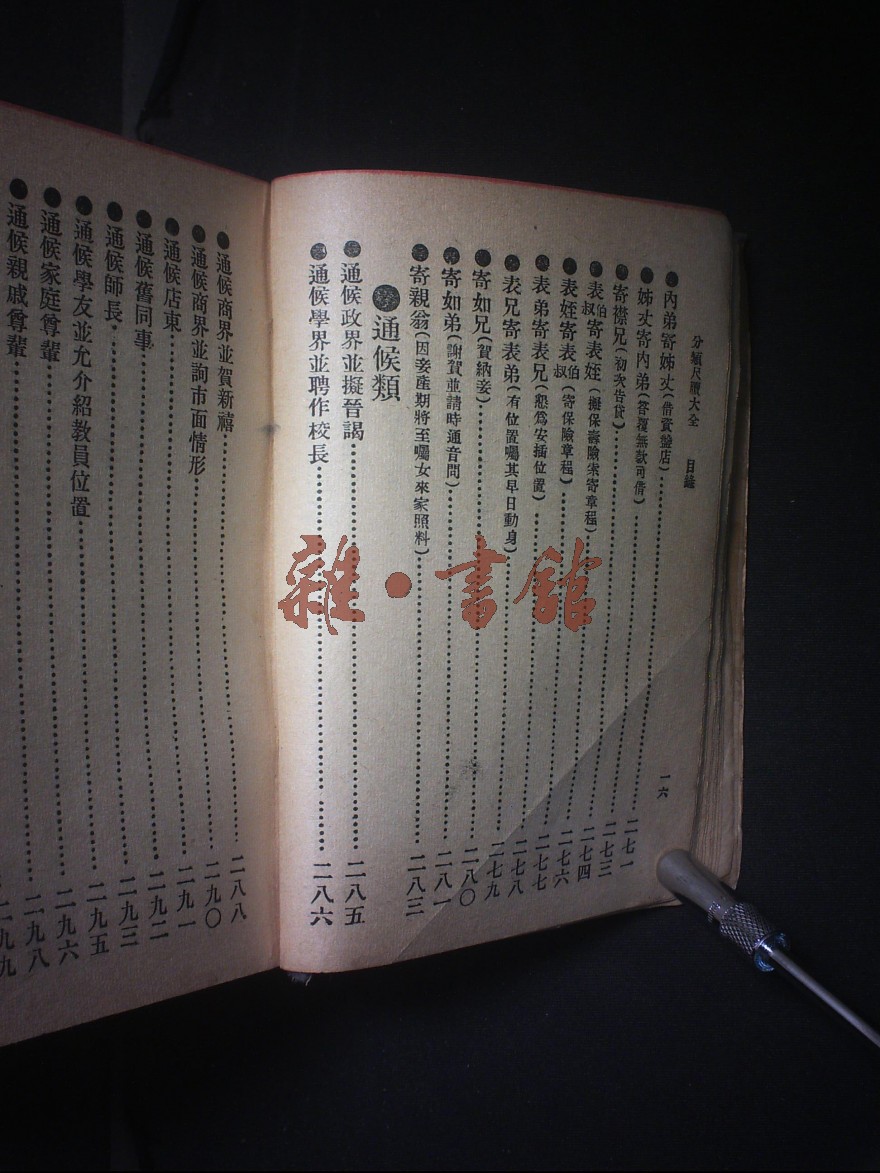 分類尺牘大全 目錄 一六
●內弟寄姊丈(借資盤店)…………二七一
●姊丈寄內弟(答覆無款可借)…………二七三
●寄襟兄(初次告貸)…………二七四
●表伯叔寄表姪(擬保壽險索寄章程)…………二七六
●表姪寄表伯叔(寄保險章程)…………二七七
●表弟寄表兄(懇爲安插位置)…………二七八
●表兄寄表弟(有位置囑其早日動身)…………二七九
●寄如兄(賀納妾)…………二八〇
●寄如弟(謝賀並請時通音問)…………二八一
●寄親翁(因妾產期將至囑女來家照料)…………二八三
●通候類
●通候政界並擬晉謁…………二八五
●通候學界並聘作校長…………二八六
●通候商界並賀新禧…………二八八
●通候商界並詢市面情形…………二九〇
●通候店東…………二九一
●通候舊同事…………二九二
●通候師長…………二九三
●通候學友並允介紹教員位置…………二九五
●通候家庭尊輩…………二九六
●通候親戚尊輩…………二九八
二九九
雜·書館